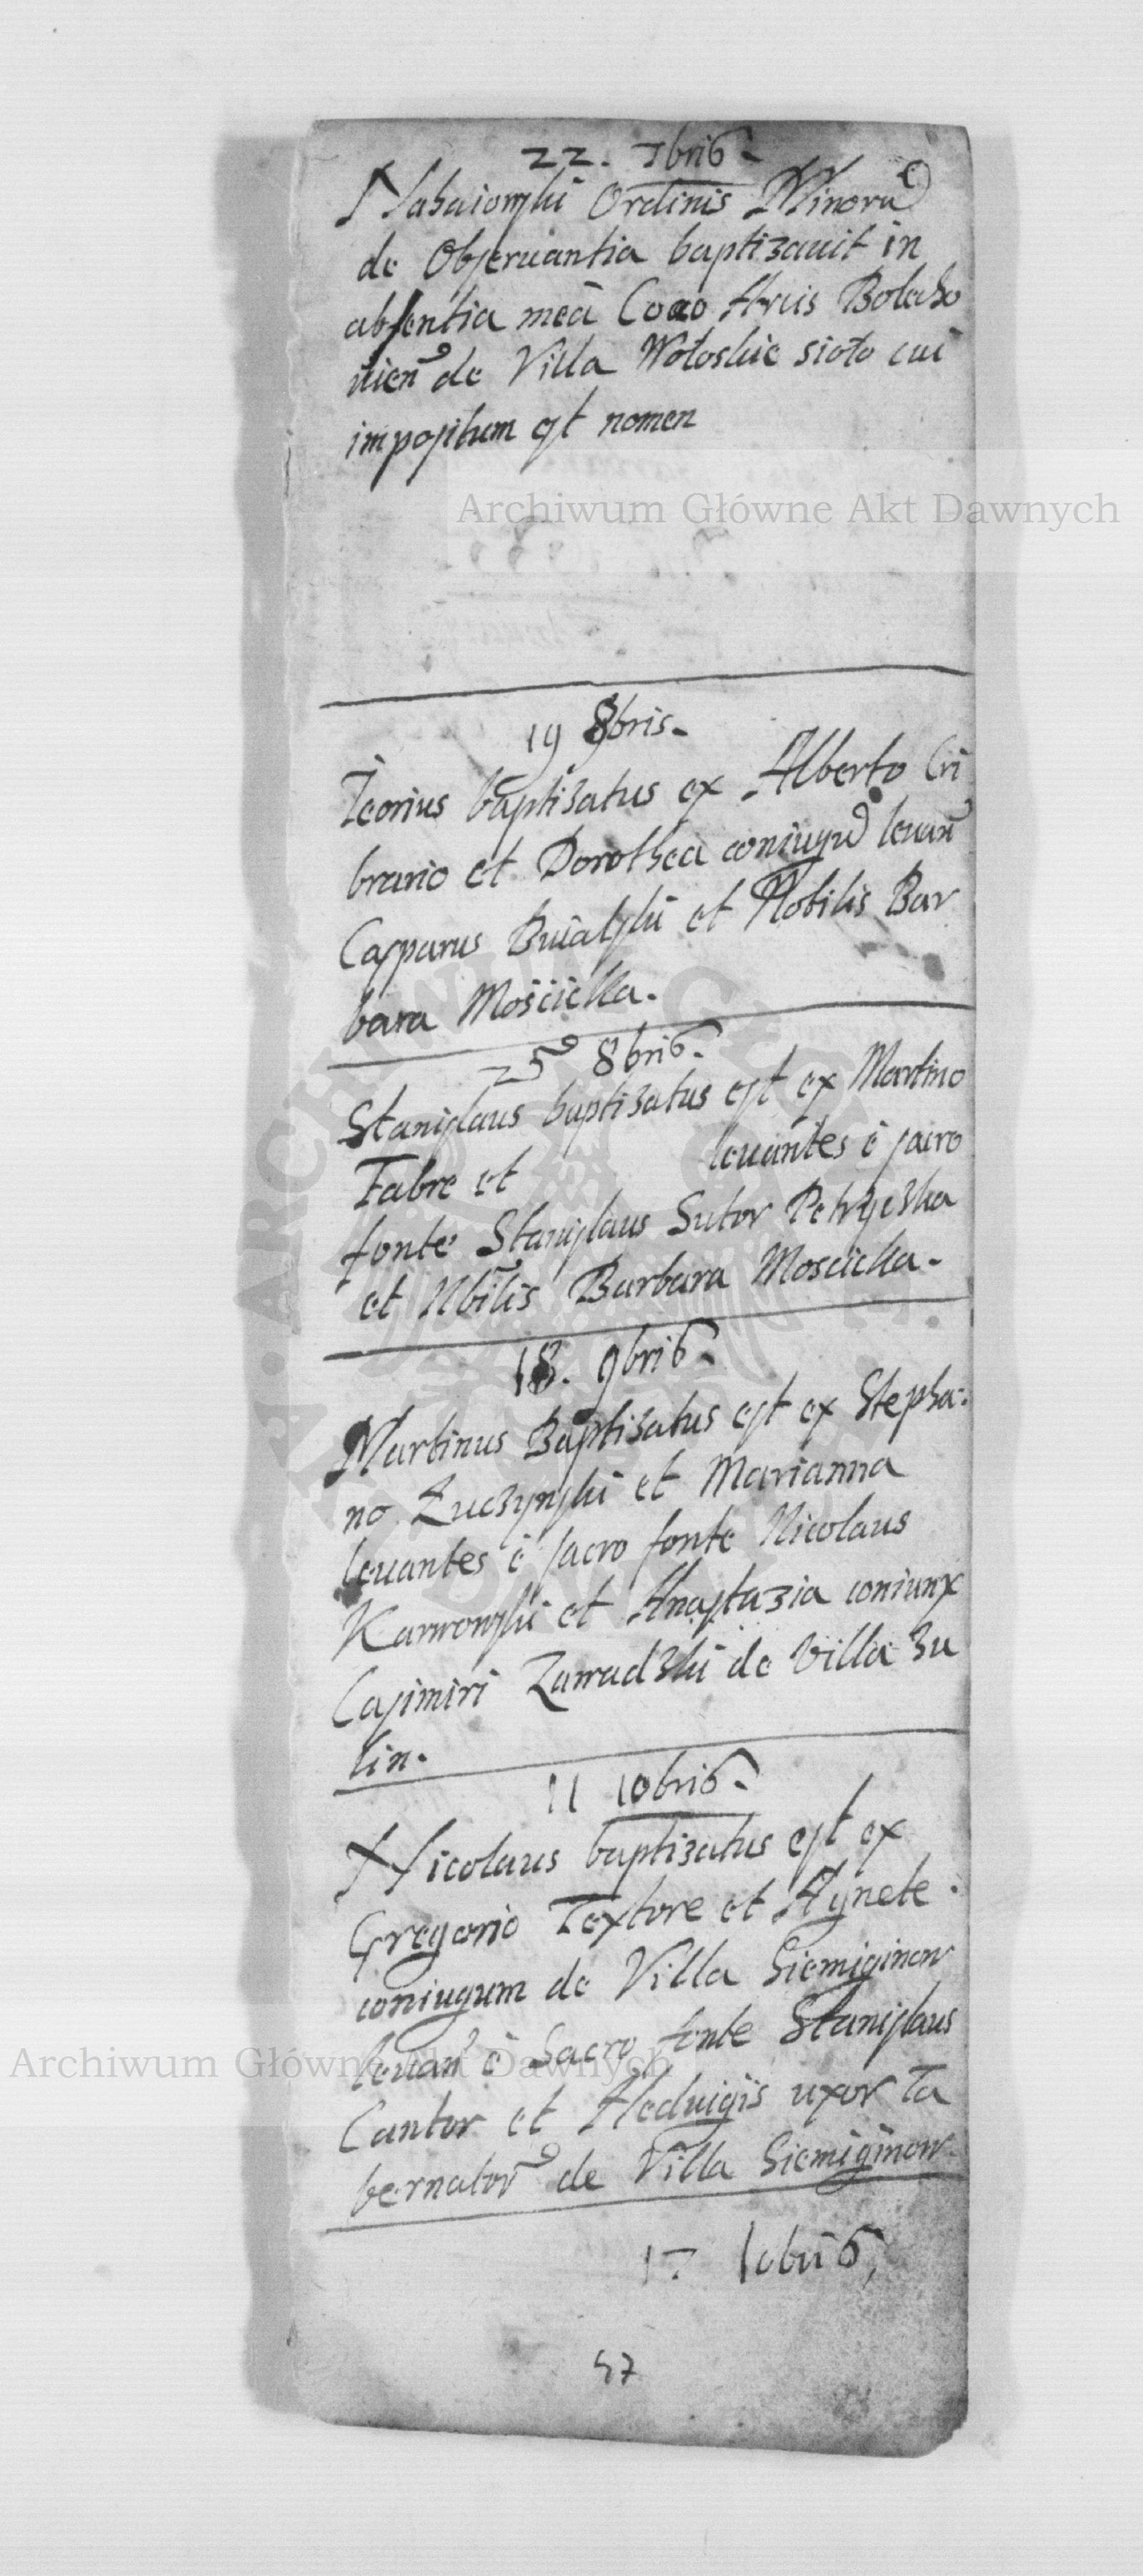 22. 7bris.
Nahaiowski Ordinis Minorū
de Observantia baptizavit in
absentia meā Coco Arcis Bolecho
vien de Villa Wołoskie sioło cui
impositum est nomen
Archiwum Główne Akt Dawnych
19 8bris.
Jeorius baptizatus ex Alberto Cri
brario et Dorothea coniugū levan
Casparus Buialski et Nobilis Bar
bara Mościcka.
25 8bris.
Stanislaus baptizatus est ex Martino
Fabre et levantes è sacro
fonte Stanislaus Sutor Petryczka
et Nbilis Barbara Moscicka.
18. 9bris.
Martinus Baptizatus est ex Stepha:
no Łuczynski et Marianna
levantes è sacro fonte Nicolaus
Karwowski et Anastazia coniunx
Casimiri Zawadzki de Villa Zu
lin.
11 10bris.
Nicolaus baptizatus est ex
Gregorio Textore et Agnete.
coniugum de Villa Siemiginow
levan è Sacro fonte Stanislaus
Archiwum Główne Akt Dawnych
Cantor et Hedvigis uxor Ta
bernator de Villa Siemiginow
17 10bris,
57